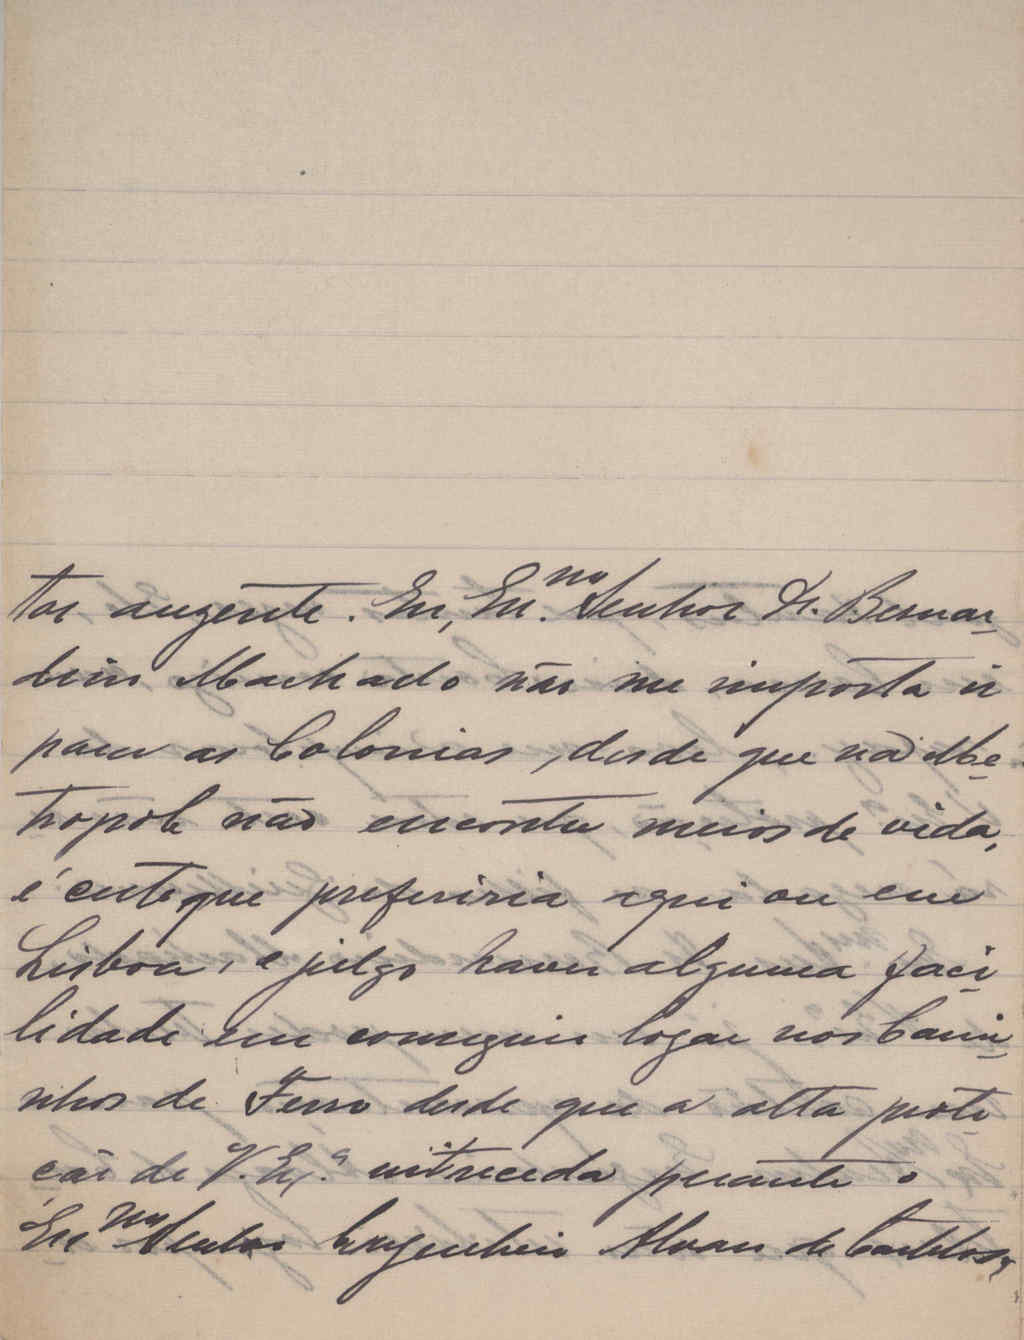 tar auzente. Eu, Ex.mo Senhor Dr. Bernar-
dino Machado não me importa ir
para as Colonias, desde que na Me-
tropole não encontre meios de vida,
é certo que preferiria aqui ou em
Lisboa, e julgo haver alguma faci-
lidade em conseguir logar nos Cami-
nhos de Ferro desde que a alta prote-
cão de V. Ex.ª interceda perante o
Ex.mo Senhor Engenheiro Alvaro de Castelões,